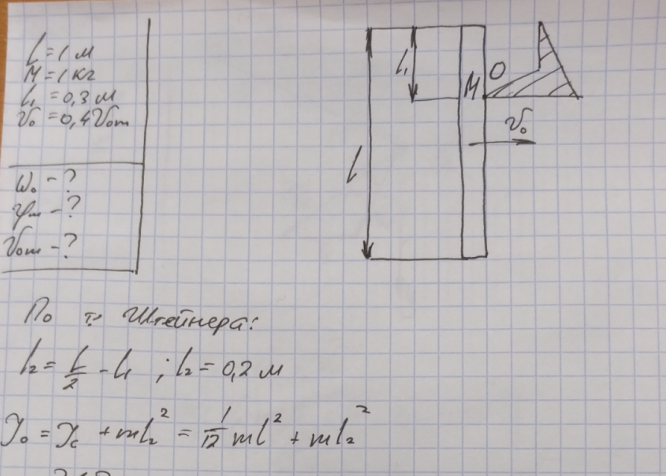 l = 1 м
M = 1 кг
l₁ = 0,3 м
v₀ = 0,4 v₀m
ω₀ - ?
φm - ?
v₀m - ?
l
l₁
M
O
v₀
По т. Штейнера:
l₂ = l/2 - l₁ ; l₂ = 0,2 м
J₀ = Jc + ml₂² = 1/12 ml² + ml₂²